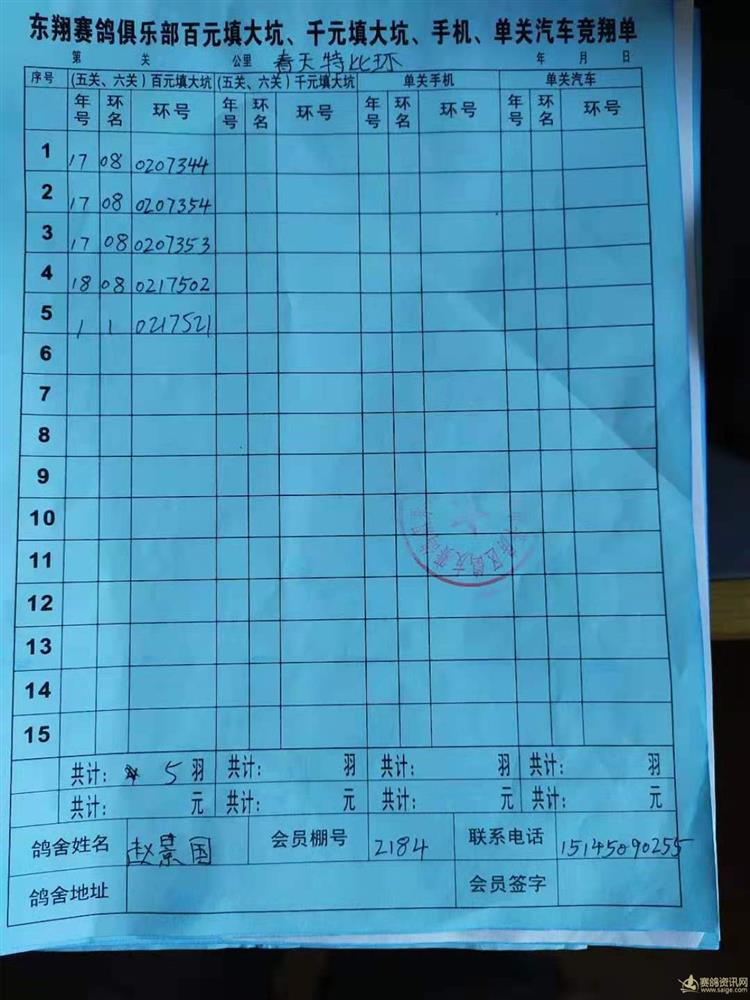 东翔赛鸽俱乐部百元填大坑、千元填大坑、手机、单关汽车竞翔单
第 关 公里 春天特比环 年 月 日
序号 (五关、六关)百元填大坑 (五关、六关)千元填大坑 单关手机 单关汽车
年号 环名 环号 年号 环名 环号 年号 环名 环号 年号 环名 环号
1 17 08 0207344
2 17 08 0207354
3 17 08 0207353
4 18 08 0217502
5 1 1 0217521
6
7
8
9
10
11
12
13
14
15
共计: 5 羽 共计: 羽 共计: 羽 共计: 羽
共计: 元 共计: 元 共计: 元 共计: 元
鸽舍姓名 赵景国 会员棚号 2184 联系电话 15145090255
鸽舍地址 会员签字
赛鸽资讯网
www.saige.com